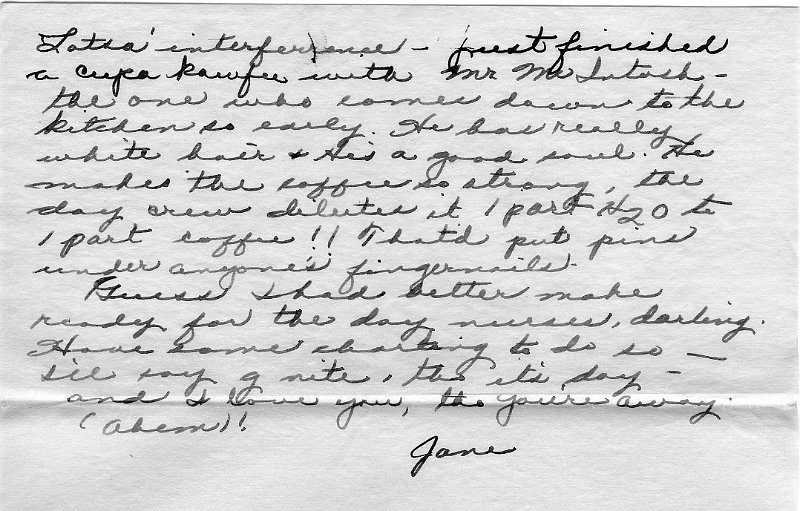 Lotsa' interference - just finished
a cupa kawfee with Mr McIntosh -
the one who comes down to the
kitchen so early. He has really
white hair & is a good soul. He
makes the coffee so strong, the
day crew dilutes it 1 part H2O to
1 part coffee!! That'd put pins
under anyone's fingernails.
Guess I had better make
ready for the day nurses, darling.
Have some charting to do so —
I'll say g'nite, tho it's day -
and I love you, tho you're away.
(Ahem)!
Jane